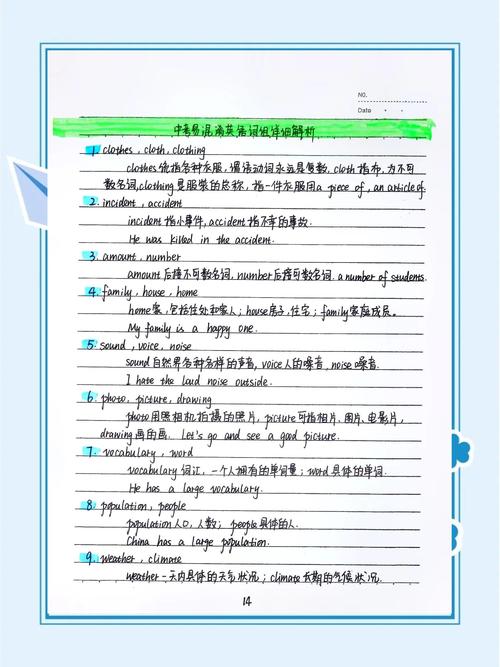 NO.
Date
中考易混淆英语词组详细解析
1. clothes, cloth, clothing
clothes统指各种衣服, 谓语动词永远是复数, cloth指布, 为不可
数名词, clothing是服装的总称, 指一件衣服用a piece of, an article of.
2. incident, accident
incident指小事件, accident指不幸的事故.
He was killed in the accident.
3. amount, number
amount后接不可数名词, number后接可数名词. a number of students.
4. family, house, home
home家, 包括住处和家人; house房子, 住宅; family家庭成员。
My family is a happy one.
5. sound, voice, noise
sound自然界各种各样的声音, voice人的嗓音, noise噪音.
I hate the loud noise outside.
6. photo, picture, drawing
photo用照相机拍摄的照片, picture可指相片、图片、电影片,
drawing画的画. Let's go and see a good picture.
7. vocabulary, word
vocabulary词汇, 一个人拥有的单词量; word具体的单词.
He has a large vocabulary.
8. population, people
population人口, 人数; people具体的人.
China has a large population.
9. weather, climate
weather一天内具体的天气状况; climate长期的气候状况.
14